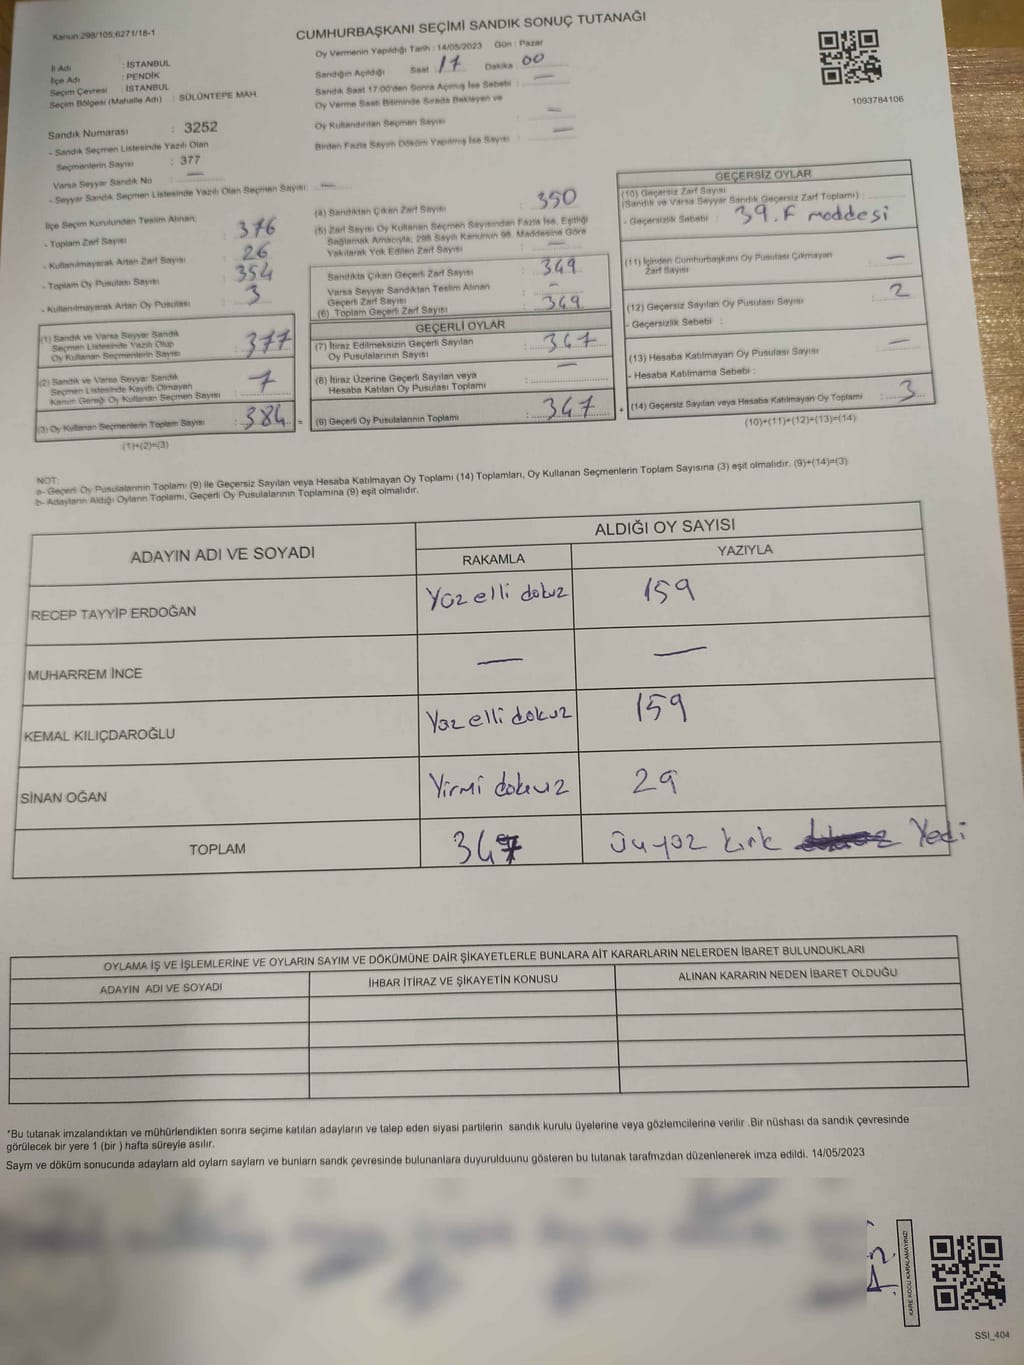 Kanun.298/105,6271/18-1
CUMHURBAŞKANI SEÇİMİ SANDIK SONUÇ TUTANAĞI
Oy Vermenin Yapıldığı Tarih : 14/05/2023 Gün : Pazar
İl Adı : İSTANBUL
İlçe Adı : PENDİK
Seçim Çevresi : İSTANBUL
Seçim Bölgesi (Mahalle Adı) : SÜLÜNTEPE MAH.
Sandığın Açıldığı Saat : 17 Dakika : 00
Sandık Saat 17:00'den Sonra Açımış İse Sebebi : —
Oy Verme Saati Bitiminde Sırada Bekleyen ve
Oy Kullandırılan Seçmen Sayısı : —
Birden Fazla Sayım Döküm Yapılmış İse Sayısı : —
1093784106
Sandık Numarası : 3252
- Sandık Seçmen Listesinde Yazılı Olan
Seçmenlerin Sayısı : 377
Varsa Seyyar Sandık No : —
- Seyyar Sandık Seçmen Listesinde Yazılı Olan Seçmen Sayısı : —
İlçe Seçim Kurulundan Teslim Alınan;
- Toplam Zarf Sayısı : 376
- Kullanılmayarak Artan Zarf Sayısı : 26
- Toplam Oy Pusulası Sayısı : 354
- Kullanılmayarak Artan Oy Pusulası : 3
(1) Sandık ve Varsa Seyyar Sandık
Seçmen Listesinde Yazılı Olup
Oy Kullanan Seçmenlerin Sayısı : 377
(2) Sandık ve Varsa Seyyar Sandık
Seçmen Listesinde Kayıtlı Olmayan
Kanun Gereği Oy Kullanan Seçmen Sayısı : 7
(3) Oy Kullanan Seçmenlerin Toplam Sayısı : 384 =
(1)+(2)=(3)
(4) Sandıktan Çıkan Zarf Sayısı : 350
(5) Zarf Sayısı Oy Kullanan Seçmen Sayısından Fazla İse, Eşitliği
Sağlamak Amacıyla; 298 Sayılı Kanunun 98. Maddesine Göre
Yakılarak Yok Edilen Zarf Sayısı :
Sandıkta Çıkan Geçerli Zarf Sayısı : 349
Varsa Seyyar Sandıktan Teslim Alınan
Geçerli Zarf Sayısı : —
(6) Toplam Geçerli Zarf Sayısı : 349
GEÇERLİ OYLAR
(7) İtiraz Edilmeksizin Geçerli Sayılan
Oy Pusulalarının Sayısı : 347
(8) İtiraz Üzerine Geçerli Sayılan veya
Hesaba Katılan Oy Pusulası Toplamı : —
(9) Geçerli Oy Pusulalarının Toplamı : 347 +
GEÇERSİZ OYLAR
(10) Geçersiz Zarf Sayısı
(Sandık ve Varsa Seyyar Sandık Geçersiz Zarf Toplamı) :
- Geçersizlik Sebebi : 39.F maddesi
(11) İçinden Cumhurbaşkanı Oy Pusulası Çıkmayan
Zarf Sayısı : —
(12) Geçersiz Sayılan Oy Pusulası Sayısı : 2
- Geçersizlik Sebebi :
(13) Hesaba Katılmayan Oy Pusulası Sayısı : —
- Hesaba Katılmama Sebebi :
(14) Geçersiz Sayılan veya Hesaba Katılmayan Oy Toplamı : 3
(10)+(11)+(12)+(13)=(14)
NOT:
a- Geçerli Oy Pusulalarının Toplamı (9) ile Geçersiz Sayılan veya Hesaba Katılmayan Oy Toplamı (14) Toplamları, Oy Kullanan Seçmenlerin Toplam Sayısına (3) eşit olmalıdır. (9)+(14)=(3)
b- Adayların Aldığı Oyların Toplamı, Geçerli Oy Pusulalarının Toplamına (9) eşit olmalıdır.
ADAYIN ADI VE SOYADI
ALDIĞI OY SAYISI
RAKAMLA YAZIYLA
RECEP TAYYİP ERDOĞAN Yüz elli dokuz 159
MUHARREM İNCE — —
KEMAL KILIÇDAROĞLU Yüz elli dokuz 159
SİNAN OĞAN Yirmi dokuz 29
TOPLAM 347 üçyüz kırk Yedi
OYLAMA İŞ VE İŞLEMLERİNE VE OYLARIN SAYIM VE DÖKÜMÜNE DAİR ŞİKAYETLERLE BUNLARA AİT KARARLARIN NELERDEN İBARET BULUNDUKLARI
ADAYIN ADI VE SOYADI İHBAR İTİRAZ VE ŞİKAYETİN KONUSU ALINAN KARARIN NEDEN İBARET OLDUĞU
*Bu tutanak imzalandıktan ve mühürlendikten sonra seçime katılan adayların ve talep eden siyasi partilerin sandık kurulu üyelerine veya gözlemcilerine verilir .Bir nüshası da sandık çevresinde
görülecek bir yere 1 (bir ) hafta süreyle asılır.
Saym ve döküm sonucunda adaylarn ald oylarn saylarn ve bunlarn sandk çevresinde bulunanlara duyurulduunu gösteren bu tutanak tarafmzdan düzenlenerek imza edildi. 14/05/2023
KARE KODU KARALAMAYINIZ!
SSI_404